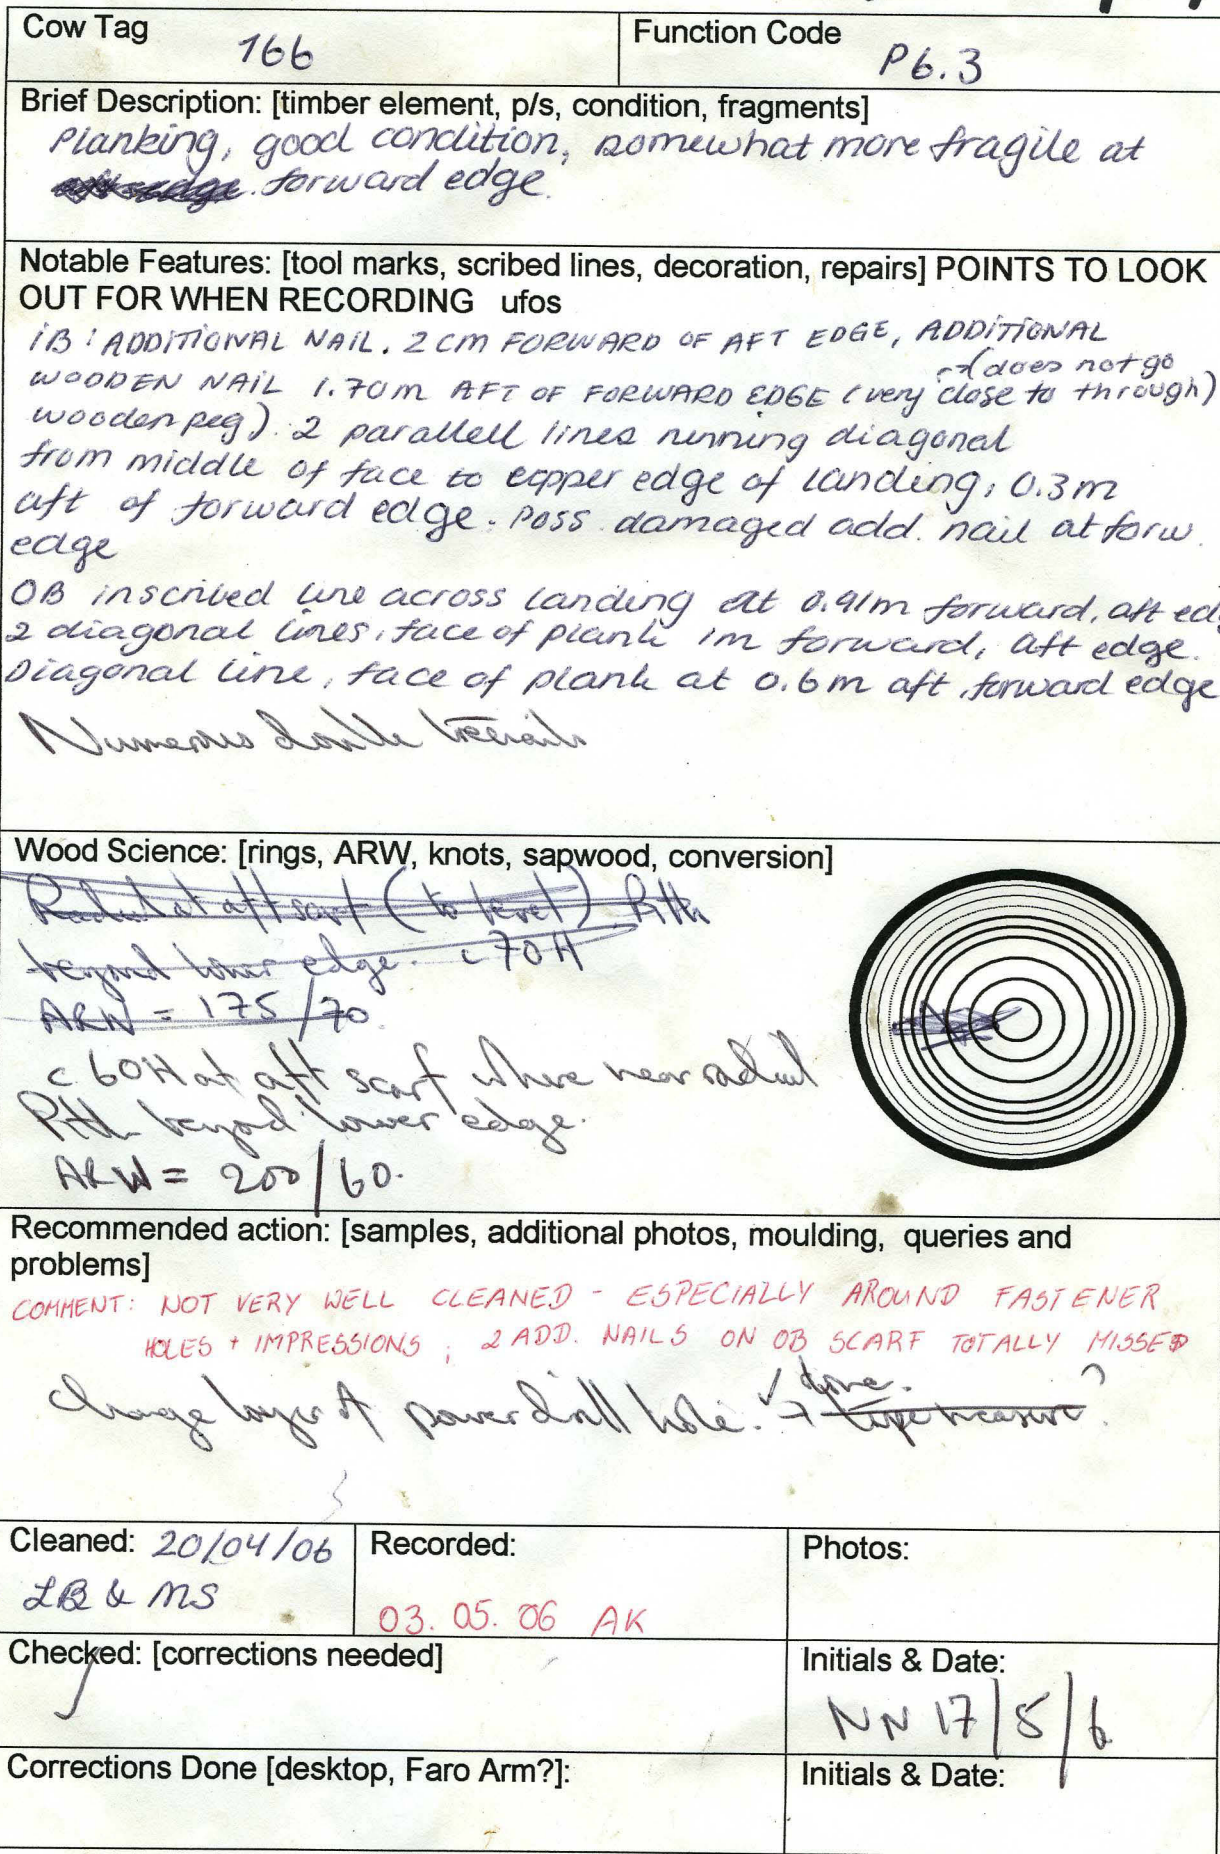 Cow Tag
166
Function Code
P6.3
Brief Description: [timber element, p/s, condition, fragments]
Planking, good condition, somewhat more fragile at
forward edge.
Notable Features: [tool marks, scribed lines, decoration, repairs] POINTS TO LOOK
OUT FOR WHEN RECORDING ufos
iB: ADDITIONAL NAIL. 2 CM FORWARD OF AFT EDGE, ADDITIONAL
WOODEN NAIL 1.70m AFT OF FORWARD EDGE (very close to
(does not go
through)
wooden peg). 2 parallell lines running diagonal
from middle of face to upper edge of landing, 0.3m
aft of forward edge. Poss. damaged add. nail at forw.
edge
OB inscribed line across landing at 0.91m forward, aft edg
2 diagonal lines, face of plank 1m forward, aft edge.
Diagonal line, face of plank at 0.6m aft, forward edge
Numerous double treenails
Wood Science: [rings, ARW, knots, sapwood, conversion]
Radial at aft scarf (to bevel) Pith
beyond lower edge. c 70H
ARW = 175/70
c. 60H at aft scarf where near radial
Pith beyond lower edge.
ARW = 200/60.
Recommended action: [samples, additional photos, moulding, queries and
problems]
COMMENT: NOT VERY WELL CLEANED - ESPECIALLY AROUND FASTENER
HOLES + IMPRESSIONS; 2 ADD. NAILS ON OB SCARF TOTALLY MISSED
Change layer of power drill hole. ✓ done.
→ tape measure?
Cleaned: 20/04/06
LB & MS
Recorded:
03. 05. 06 AK
Photos:
Checked: [corrections needed]
Initials & Date:
NN 17/5/6
Corrections Done [desktop, Faro Arm?]:
Initials & Date: